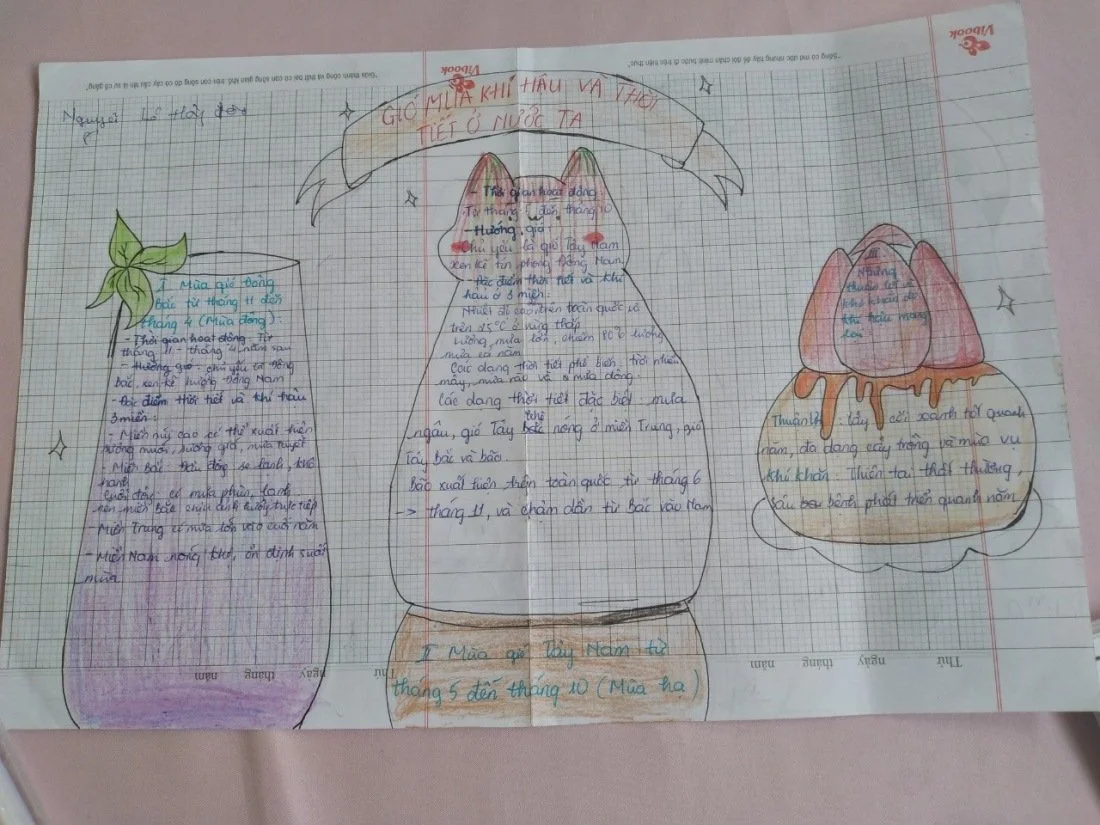 Vibook
Vibook
"Sống có mơ ước nhưng hãy để đôi chân mình bước đi trên hiện thực"
Nguyễn Lê
GIÓ MÙA KHÍ HẬU VÀ THỜI
TIẾT Ở NƯỚC TA
I Mùa gió Đông
Bắc từ tháng 11 đến
tháng 4 (Mùa đông):
- Thời gian hoạt động: Từ
tháng 11 - tháng 4 năm sau
- Hướng gió: chủ yếu từ Đông
bắc, xen kẽ hướng Đông Nam
- Đặc điểm thời tiết và khí hậu
3 miền:
- Miền núi cao có thể xuất hiện
sương muối, sương giá, mưa tuyết
- Miền Bắc đầu đông se lạnh, khô
hanh
Cuối đông có mưa phùn, lạnh
nên miền Bắc chịu ảnh hưởng trực tiếp
- Miền Trung có mưa lớn vào cuối năm
- Miền Nam nóng khô, ổn định suốt
mùa
- Thời gian hoạt động
Từ tháng 5 đến tháng 10
- Hướng gió:
Chủ yếu là gió Tây Nam
xen kẽ tín phong Đông Nam
- Đặc điểm thời tiết và khí
hậu ở 3 miền:
Nhiệt độ cao trên toàn quốc
trên 25°C ở vùng thấp
lượng mưa lớn, chiếm 80% lượng
mưa cả năm
Các dạng thời tiết phổ biến: trời nhiều
mây, mưa rào và mưa dông.
Các dạng thời tiết đặc biệt mưa
ngâu, gió Tây khô nóng ở miền Trung, gió
Tây Bắc và bão.
Bão xuất hiện trên toàn quốc từ tháng 6
-> tháng 11, và chậm dần từ Bắc vào Nam
II Mùa gió Tây Nam từ
tháng 5 đến tháng 10 (Mùa hạ)
III.
Những
thuận lợi và
khó khăn do
khí hậu mang
lại
Thuận lợi: cây cối xanh tốt quanh
năm, đa dạng cây trồng và mùa vụ
khó khăn: Thiên tai thất thường,
sâu bệnh phát triển quanh năm
Thứ ngày tháng năm
Thứ ngày tháng năm